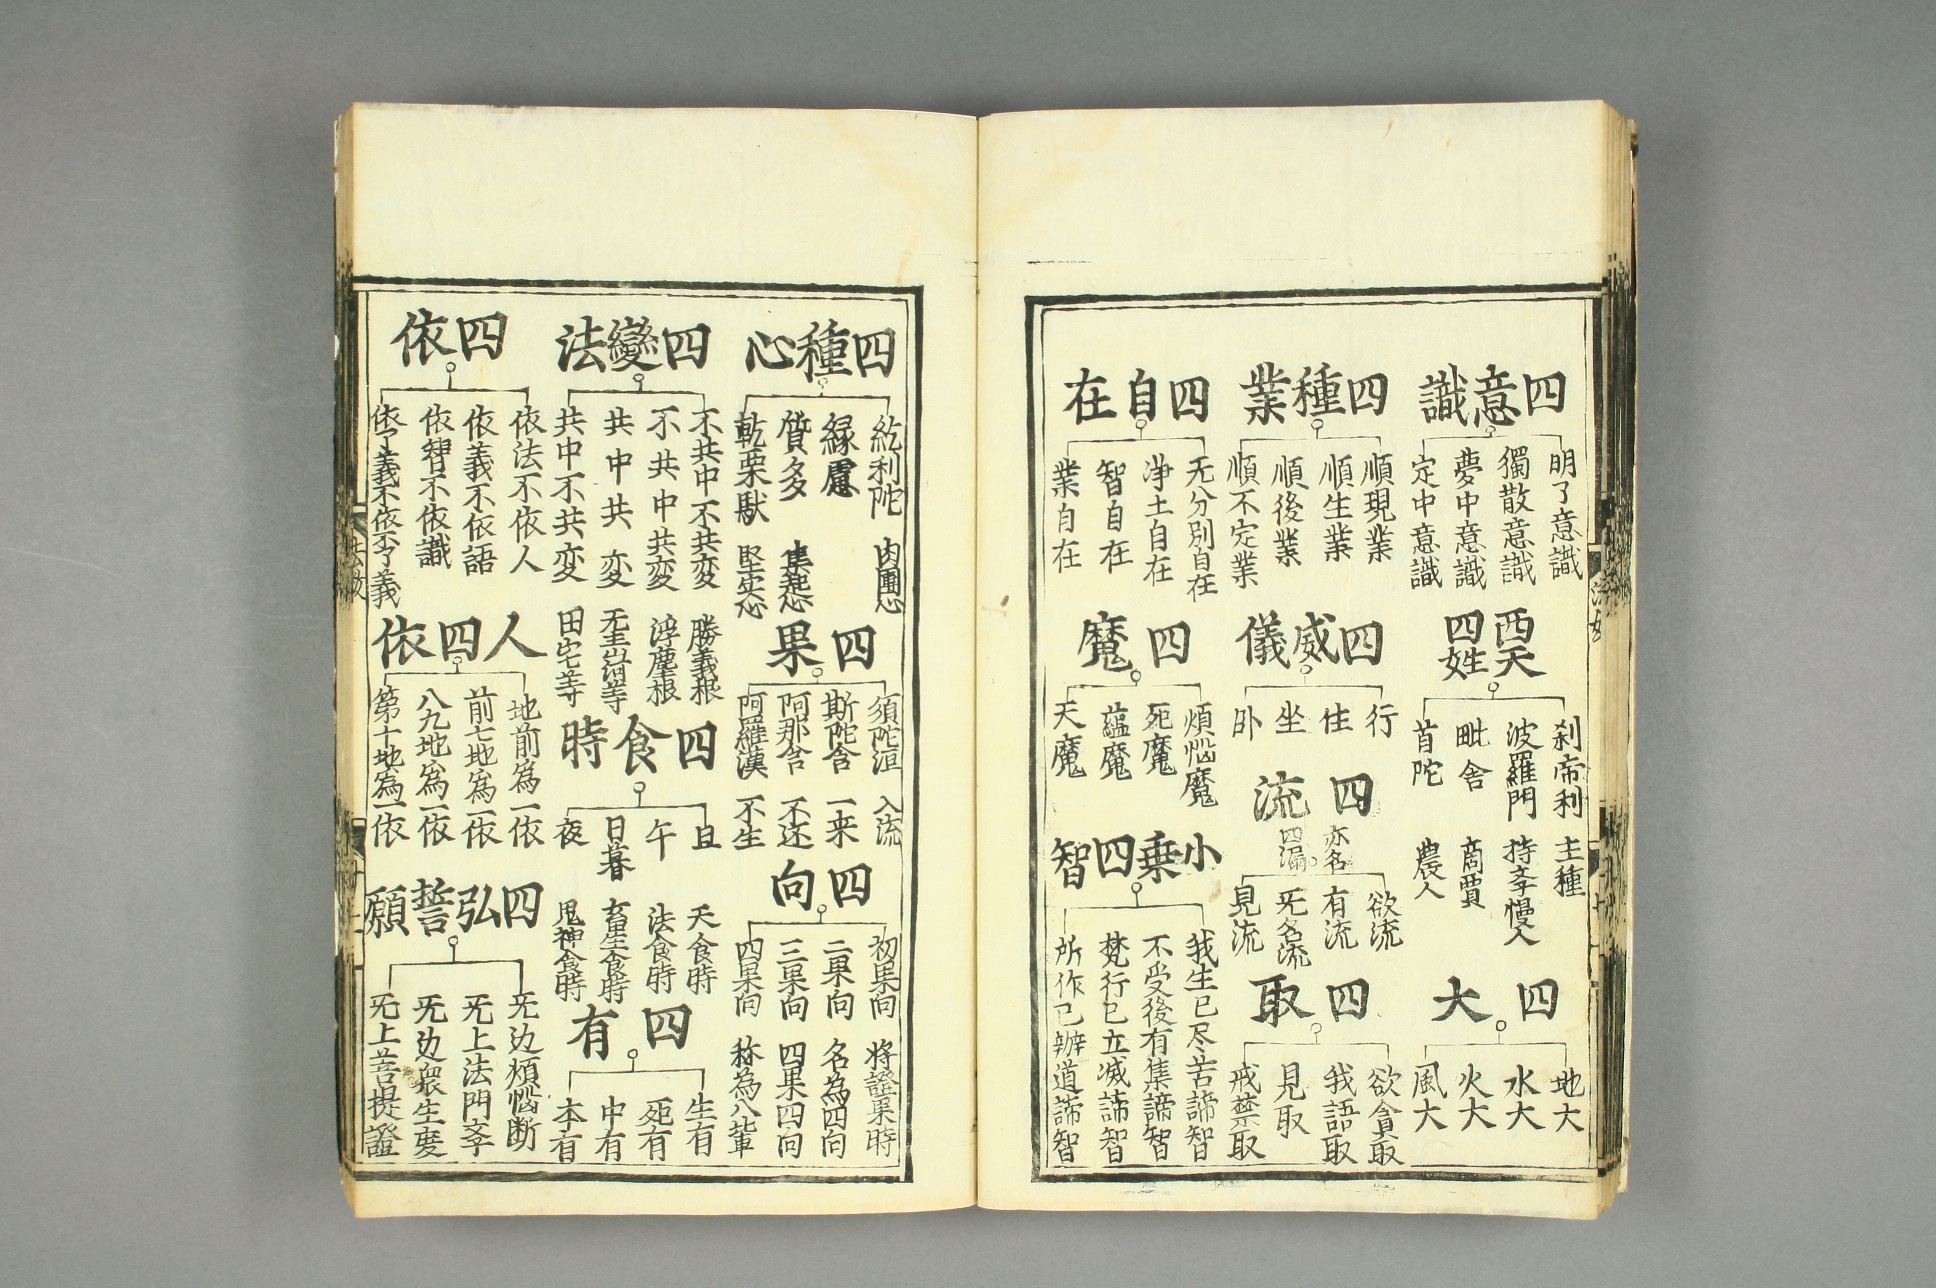 四意識
明了意識
獨散意識
夢中意識
定中意識
西天四姓
刹帝利 主種
波羅門 持斈慢人
毗舍 商賈
首陀 農人
四大
地大
水大
火大
風大
四種業
順現業
順生業
順後業
順不定業
四威儀
行
住
坐
卧
四流
亦名
四漏
欲流
有流
旡名流
見流
四取
欲貪取
我語取
見取
戒禁取
四自在
无分別自在
净土自在
智自在
業自在
四魔
煩惱魔
死魔
蘊魔
天魔
小乗四智
我生已尽苦諦智
不受後有集諦智
梵行已立滅諦智
所作已辦道諦智
四種心
紇利陀 肉團心
緣慮
質多 集起心
乾栗駄 堅实心
四果
須陀洹 入流
斯陀含 一来
阿那含 不还
阿羅漢 不生
四向
初果向 將證果時
二果向 名為四向
三果向 四果四向
四果向 称為八輩
四變法
不共中不共変 勝義根
不共中共変 浮塵根
共中共変 无主山河等
共中不共変 田宅等
四食時
旦 天食時
午 法食時
日暮 畜生食時
夜 鬼神食時
四有
生有
死有
中有
本有
四依
依法不依人
依義不依語
依智不依識
依了義不依不了義
人四依
地前為一依
前七地為一依
八九地為一依
第十地為一依
四弘誓願
旡边煩惱断
旡上法門斈
旡边衆生度
旡上菩提證